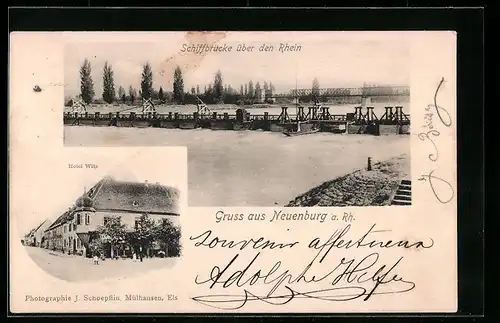 Schiffbrücke über den Rhein
Hotel Wilz
Gruss aus Neuenburg a. Rh.
Souvenir affectueux
Adolphe
Photographie J. Schoepflin, Mülhausen, Els